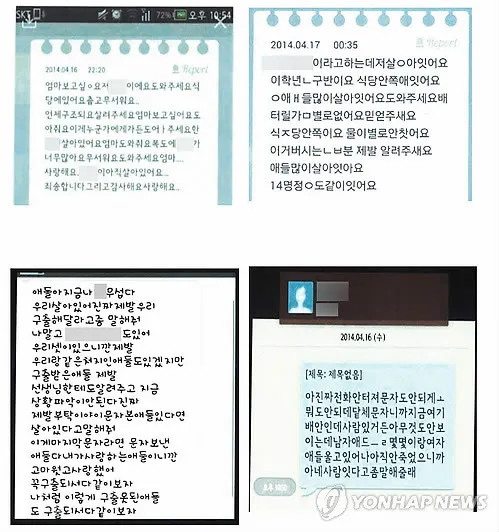 SKT 72% 오후 10:54
Report
2014.04.16 22:20
엄마보고싶ㅇ요저 이에요도와주세요식
당에있어요춥고무서워요..
언제구조되요살려주세요엄마보고싶어요도
아줘요이게누군가에게가든도어ㅏ주세요한
살아있어요엄마도와줘요복도에 가
너무많아요무서워요도와주세요엄마....
사랑해요. 이아직살아있어요...
죄송합니다그리고감사해요사랑해요..
Report
2014.04.17 00:35
이라고하는데저살ㅇ아잇어요
이학년ㄴ구반이요 식당안쪽애잇어요
ㅇ애ㅐ들많이살아잇어요도와주세요배
터릴가ㅁ별로없어요믿얻주새요
식ㅈ당안쪽이요 물이별로안찻어요
이거버시는ㄴㅂ분 제발 알려주새요
애들많이살아엇아요
14명정ㅇ도같이잇어요
애들아지금나 무섭다
우리살아있어진짜제발우리
구출해달라고좀 말해줘
나말고 도있어
우리셋이있으니깐제발
우리랑같은처지인애들도있겠지만
구출받은애들 제발
선생님한테도알려주고 지금
상황파악이안된다진짜
제발부탁이야이문자본애들있다면
살아있다고말해줘
이게마지막문자라면 문자보낸
애들다내가사랑하는애들이니깐
고마웠고사랑했어
꼭구출되서다같이보자
나처럼 이렇게 구출못된애들
도 구출되서다같이보자
2014.04.16 (수)
[제목: 제목없음]
아진짜전화안터져문자도안되게ㅗ
뭐도안되데닽체문자니까지금여기
배안인데사람있거든아무것도안보
이는데남자애드ㅡㄹ몇몇이랑여자
애들울고있어나아직안죽었으니까
아네사람잇다고좀말해줄래
YONHAPNEWS